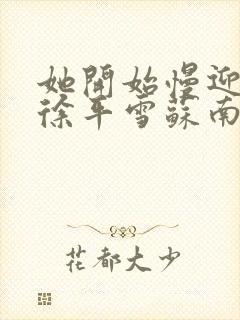 她開始慢迎
徐平雪蘇南
花都大少